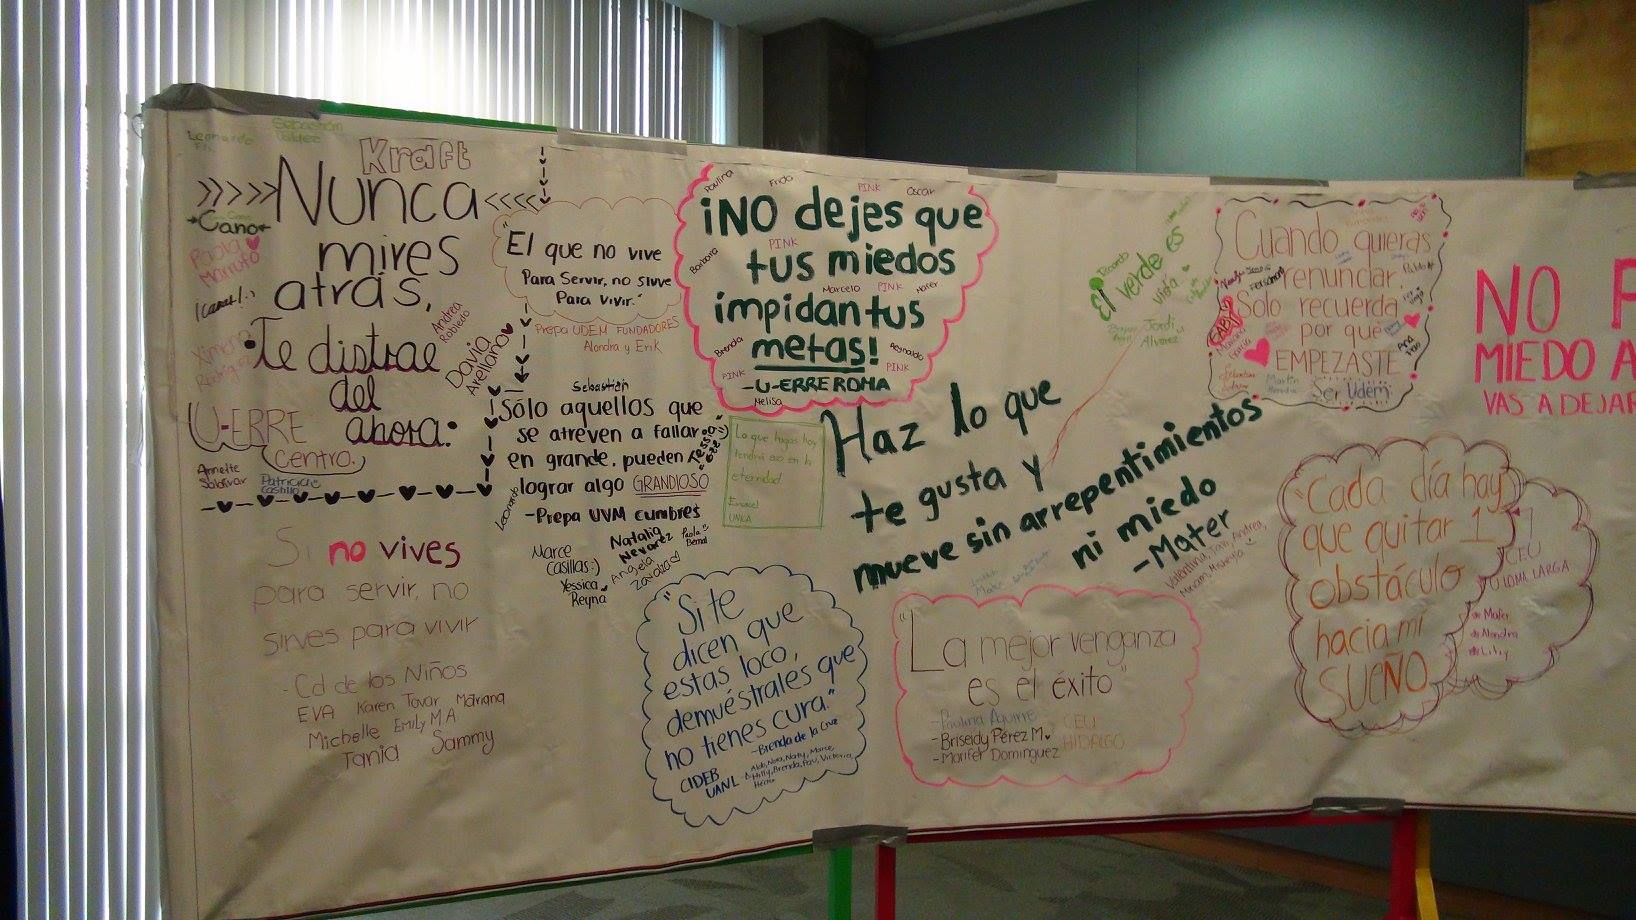 Sebastián
Kraft
Nunca
mires
atrás,
Te distrae
del
ahora.
Cano
Paola
Marrufo
Andrea
Robledo
David
Arellano
Ximena
U-ERRE
Centro.
Annette
Saldivar
Patricia
Castillo
Si no vives
para servir, no
sirves para vivir
- Cd de los Niños
EVA Karen Tovar Mariana
Michelle Emily M.A
Tania Sammy
"El que no vive
Para Servir, no sirve
Para Vivir."
Prepa UDEM FUNDADORES
Alondra y Erik
Sebastián
Sólo aquellos que
se atreven a fallar
en grande, pueden
lograr algo GRANDIOSO
-Prepa UVM cumbres
Leonardo
Marce
Casillas:)
Yessica
Reyna
Natalia
Nevarez
Angela
Zavala
Paola
Bernal
Paulina Frida PINK Oscar
¡NO dejes que
PINK
tus miedos
Barbara Marcelo PINK
impidan tus
metas!
Brenda Reynaldo
PINK PINK
-U-ERRE ROMA
Melisa
Lo que hagas hoy
tendrá eco en la
eternidad
UNLA
"Si te
dicen que
estas loco,
demuéstrales que
no tienes cura."
-Brenda de la Cruz
CIDEB
UANL
Haz lo que
te gusta y
mueve sin arrepentimientos
ni miedo
-Mater
El verde es
vida
Ricardo
Jordi
Alvarez
"La mejor venganza
es el éxito"
-Paulina Aguirre CEU
-Briseidy Pérez M. HIDALGO
-Marifer Dominguez
Cuando quieras
renunciar,
Solo recuerda
por qué
EMPEZASTE
Ser Udem
"Cada día hay
que quitar 1
obstáculo
hacia mi
SUEÑO
CEU
LOMA LARGA
Mafer
Alondra
Lily
NO P
MIEDO A
VAS A DEJAR